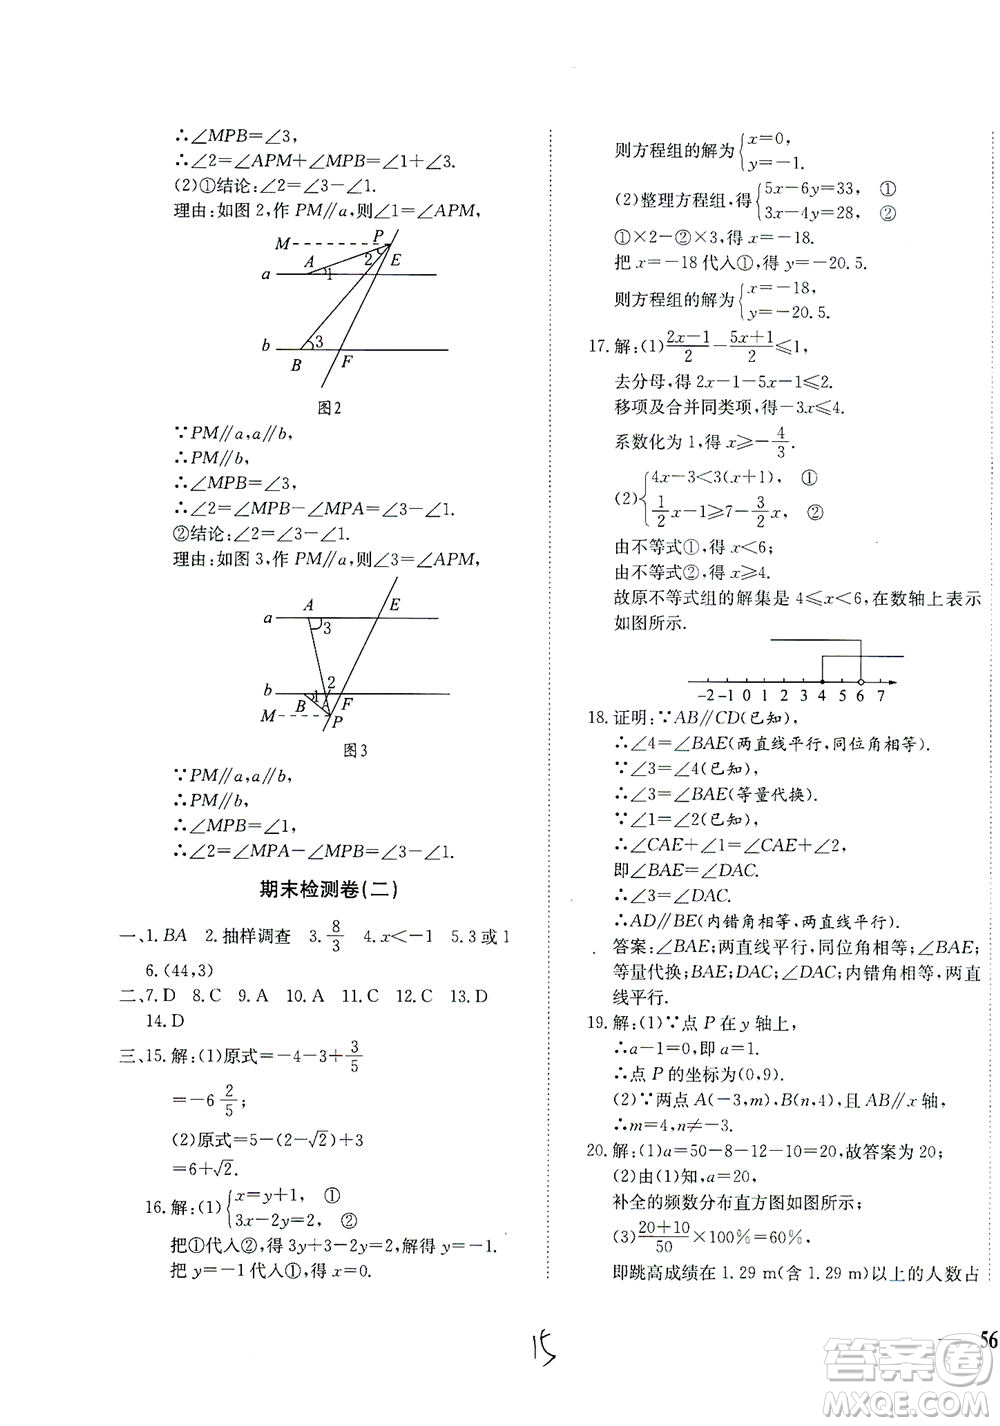 ∴∠MPB=∠3,
∴∠2=∠APM+∠MPB=∠1+∠3.
(2)①结论:∠2=∠3-∠1.
理由:如图2,作PM∥a,则∠1=∠APM,
M P
A 2 E
a 1
b 3
B F
图2
∵PM∥a,a∥b,
∴PM∥b,
∴∠MPB=∠3,
∴∠2=∠MPB-∠MPA=∠3-∠1.
②结论:∠2=∠3-∠1.
理由:如图3,作PM∥a,则∠3=∠APM,
A E
a 3
b 2
B 1 F
M P
图3
∵PM∥a,a∥b,
∴PM∥b,
∴∠MPB=∠1,
∴∠2=∠MPA-∠MPB=∠3-∠1.
期末检测卷(二)
一、1.BA 2.抽样调查 3.8/3 4.x<-1 5.3或1
6.(44,3)
二、7.D 8.C 9.A 10.A 11.C 12.C 13.D
14.D
三、15.解:(1)原式=-4-3+3/5
=-6 2/5;
(2)原式=5-(2-√2)+3
=6+√2.
16.解:(1){x=y+1, ①
3x-2y=2, ②
把①代入②,得3y+3-2y=2,解得y=-1.
把y=-1代入①,得x=0.
则方程组的解为{x=0,
y=-1.
(2)整理方程组,得{5x-6y=33, ①
3x-4y=28, ②
①×2-②×3,得x=-18.
把x=-18代入①,得y=-20.5.
则方程组的解为{x=-18,
y=-20.5.
17.解:(1)(2x-1)/2-(5x+1)/2≤1,
去分母,得2x-1-5x-1≤2.
移项及合并同类项,得-3x≤4.
系数化为1,得x≥-4/3.
(2){4x-3<3(x+1), ①
1/2x-1≥7-3/2x, ②
由不等式①,得x<6;
由不等式②,得x≥4.
故原不等式组的解集是4≤x<6,在数轴上表示
如图所示.
-2 -1 0 1 2 3 4 5 6 7
18.证明:∵AB∥CD(已知),
∴∠4=∠BAE(两直线平行,同位角相等).
∵∠3=∠4(已知),
∴∠3=∠BAE(等量代换).
∵∠1=∠2(已知),
∴∠CAE+∠1=∠CAE+∠2,
即∠BAE=∠DAC.
∴∠3=∠DAC.
∴AD∥BE(内错角相等,两直线平行).
答案:∠BAE;两直线平行,同位角相等;∠BAE;
等量代换;BAE;DAC;∠DAC;内错角相等,两直
线平行.
19.解:(1)∵点P在y轴上,
∴a-1=0,即a=1.
∴点P的坐标为(0,9).
(2)∵两点A(-3,m),B(n,4),且AB∥x轴,
∴m=4,n≠-3.
20.解:(1)a=50-8-12-10=20;故答案为20;
(2)由(1)知,a=20,
补全的频数分布直方图如图所示;
(3)(20+10)/50×100%=60%,
即跳高成绩在1.29 m(含1.29 m)以上的人数占
15
56
答案圈
MXQE.COM